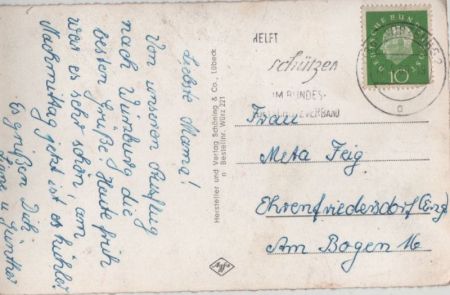 Liebste Mama!
Von unserem Ausflug
nach Würzburg die
besten Grüße. Heute früh
war es sehr schön, am
Nachmittag jetzt ist es kühler.
Es grüßen Dich
u. Günther
Hersteller und Verlag Schöning & Co., Lübeck
n Bestellnr. Würz 221
HELFT
schützen
IM BUNDES-
VERBAND
DEUTSCHE BUNDESPOST
10
Frau
Meta Feig
Ehrenfriedersdorf (Erzg.
Am Bogen 16